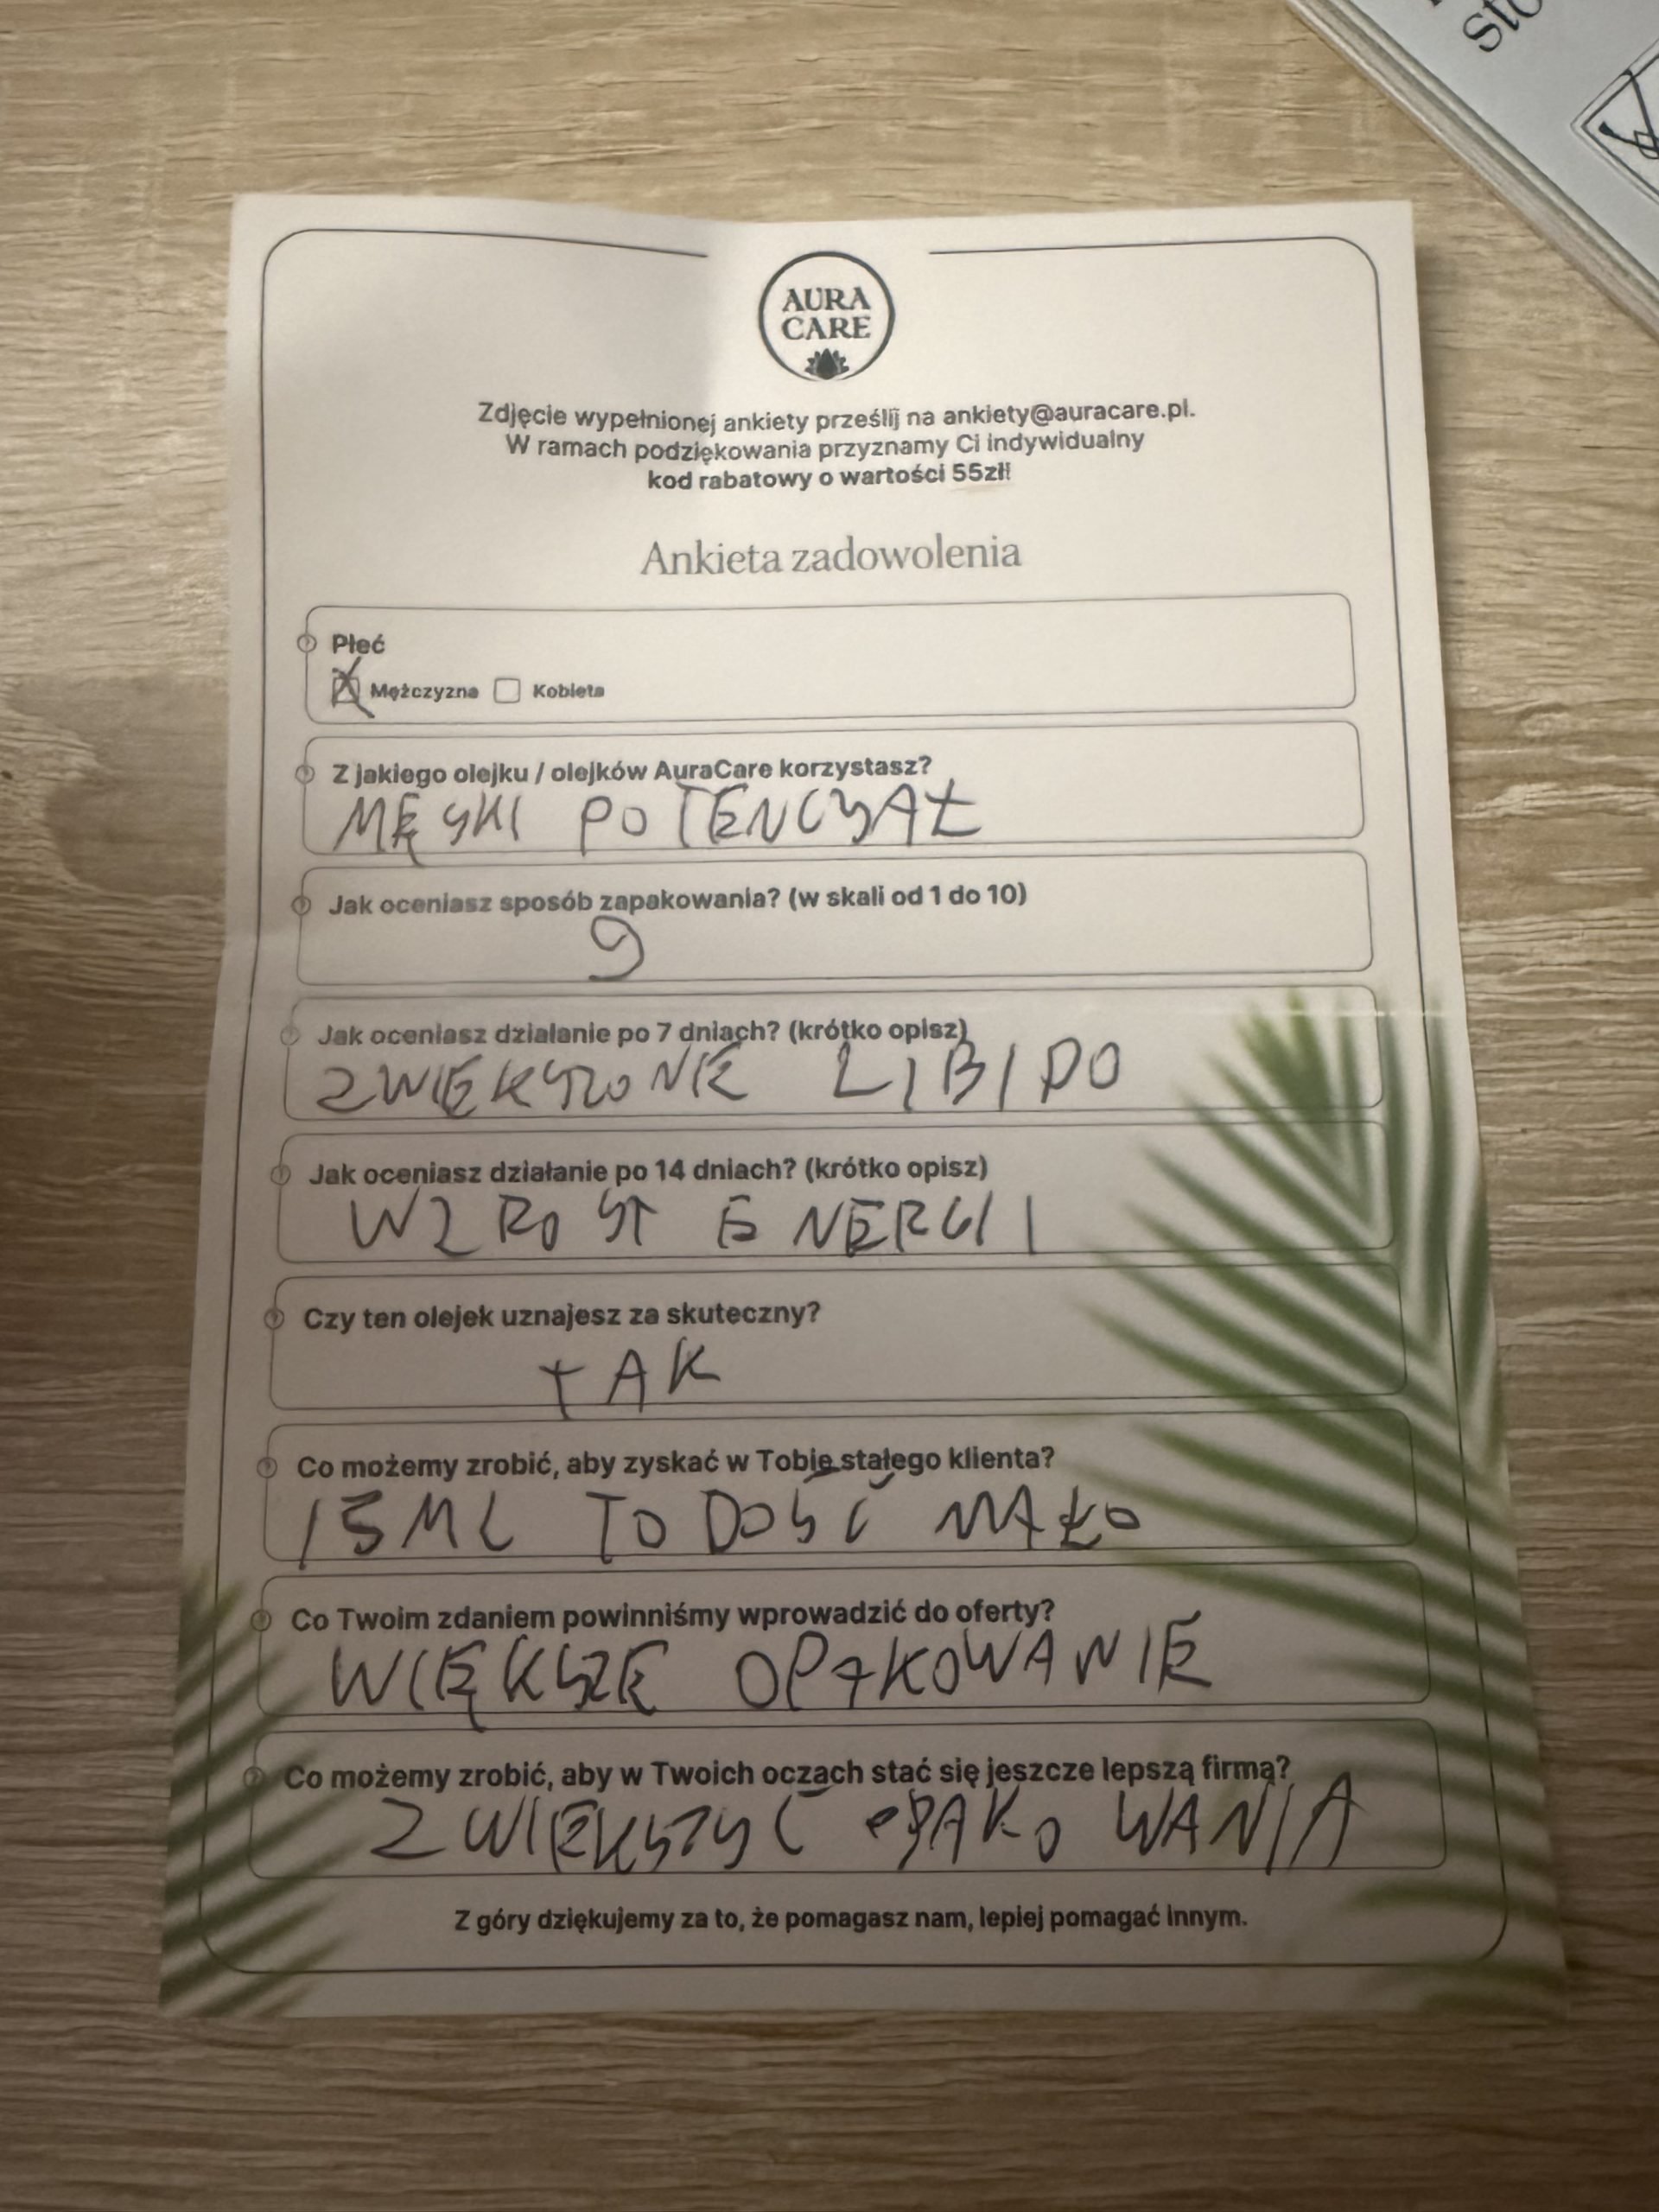 sto
AURA
CARE
Zdjęcie wypełnionej ankiety prześlij na ankiety@auracare.pl.
W ramach podziękowania przyznamy Ci indywidualny
kod rabatowy o wartości 55zł!
Ankieta zadowolenia
Płeć
Mężczyzna Kobieta
Z jakiego olejku / olejków AuraCare korzystasz?
MĘSKI POTENCJAŁ
Jak oceniasz sposób zapakowania? (w skali od 1 do 10)
9
Jak oceniasz działanie po 7 dniach? (krótko opisz)
ZWIĘKSZONE LIBIDO
Jak oceniasz działanie po 14 dniach? (krótko opisz)
WZROST ENERGII
Czy ten olejek uznajesz za skuteczny?
TAK
Co możemy zrobić, aby zyskać w Tobie stałego klienta?
15ML TO DOŚĆ MAŁO
Co Twoim zdaniem powinniśmy wprowadzić do oferty?
WIĘKSZE OPAKOWANIE
Co możemy zrobić, aby w Twoich oczach stać się jeszcze lepszą firmą?
ZWIĘKSZYĆ OPAKOWANIA
Z góry dziękujemy za to, że pomagasz nam, lepiej pomagać innym.